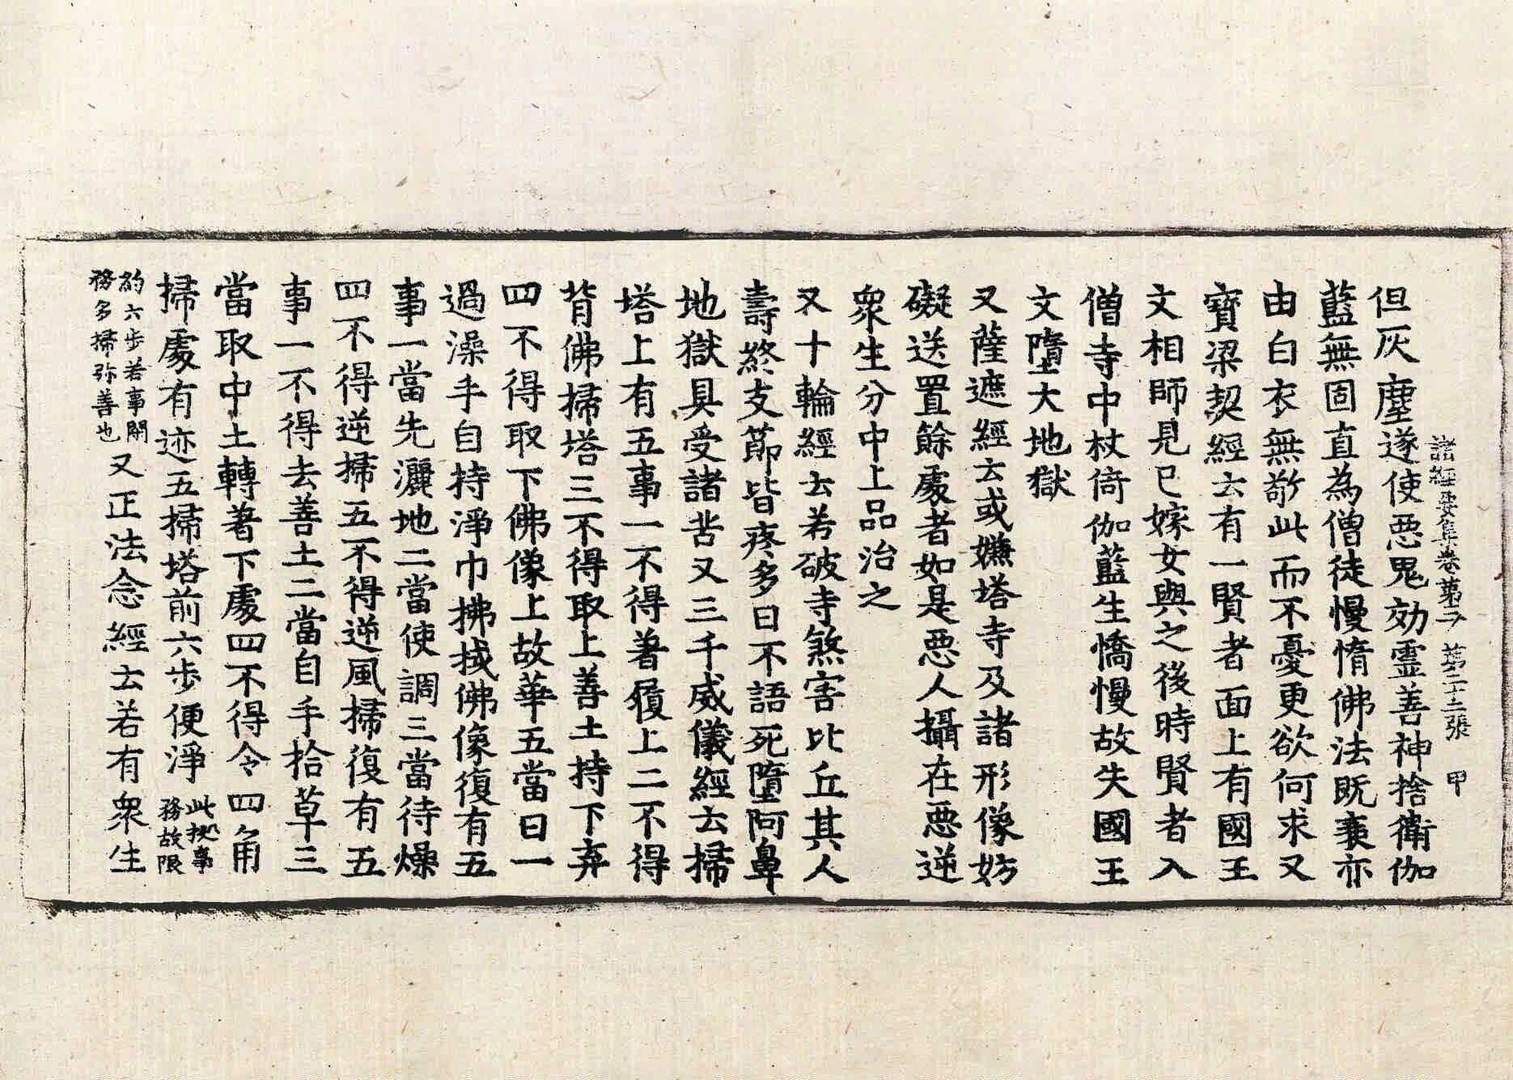 諸經要集卷第二 第二十二張 甲
但灰塵遂使惡鬼効靈善神捨衛伽
藍無固直為僧徒慢惰佛法既衰亦
由白衣無敬此而不憂更欲何求又
寶梁契經云有一賢者面上有國王
文相師見已嫁女與之後時賢者入
僧寺中杖倚伽藍生憍慢故失國王
文墮大地獄
又薩遮經云或嫌塔寺及諸形像妨
礙送置餘處者如是惡人攝在惡逆
眾生分中上品治之
又十輪經云若破寺煞害比丘其人
壽終支節皆疼多日不語死墮阿鼻
地獄具受諸苦又三千威儀經云掃
塔上有五事一不得著履上二不得
背佛掃塔三不得取上善土持下弃
四不得取下佛像上故華五當日一
過澡手自持淨巾拂拭佛像復有五
事一當先灑地二當使調三當待燥
四不得逆掃五不得逆風掃復有五
事一不得去善土二當自手拾草三
當取中土轉著下處四不得令四角
掃處有迹五掃塔前六步便淨 此據事
務故限
約六步若事閑
務多掃弥善也 又正法念經云若有眾生